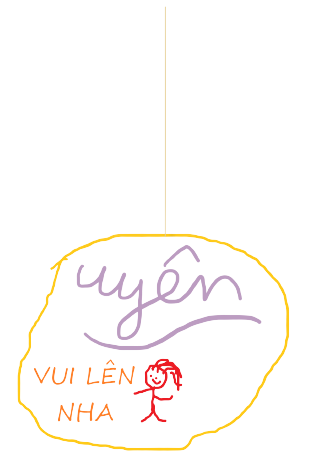 uyên
VUI LÊN
NHA